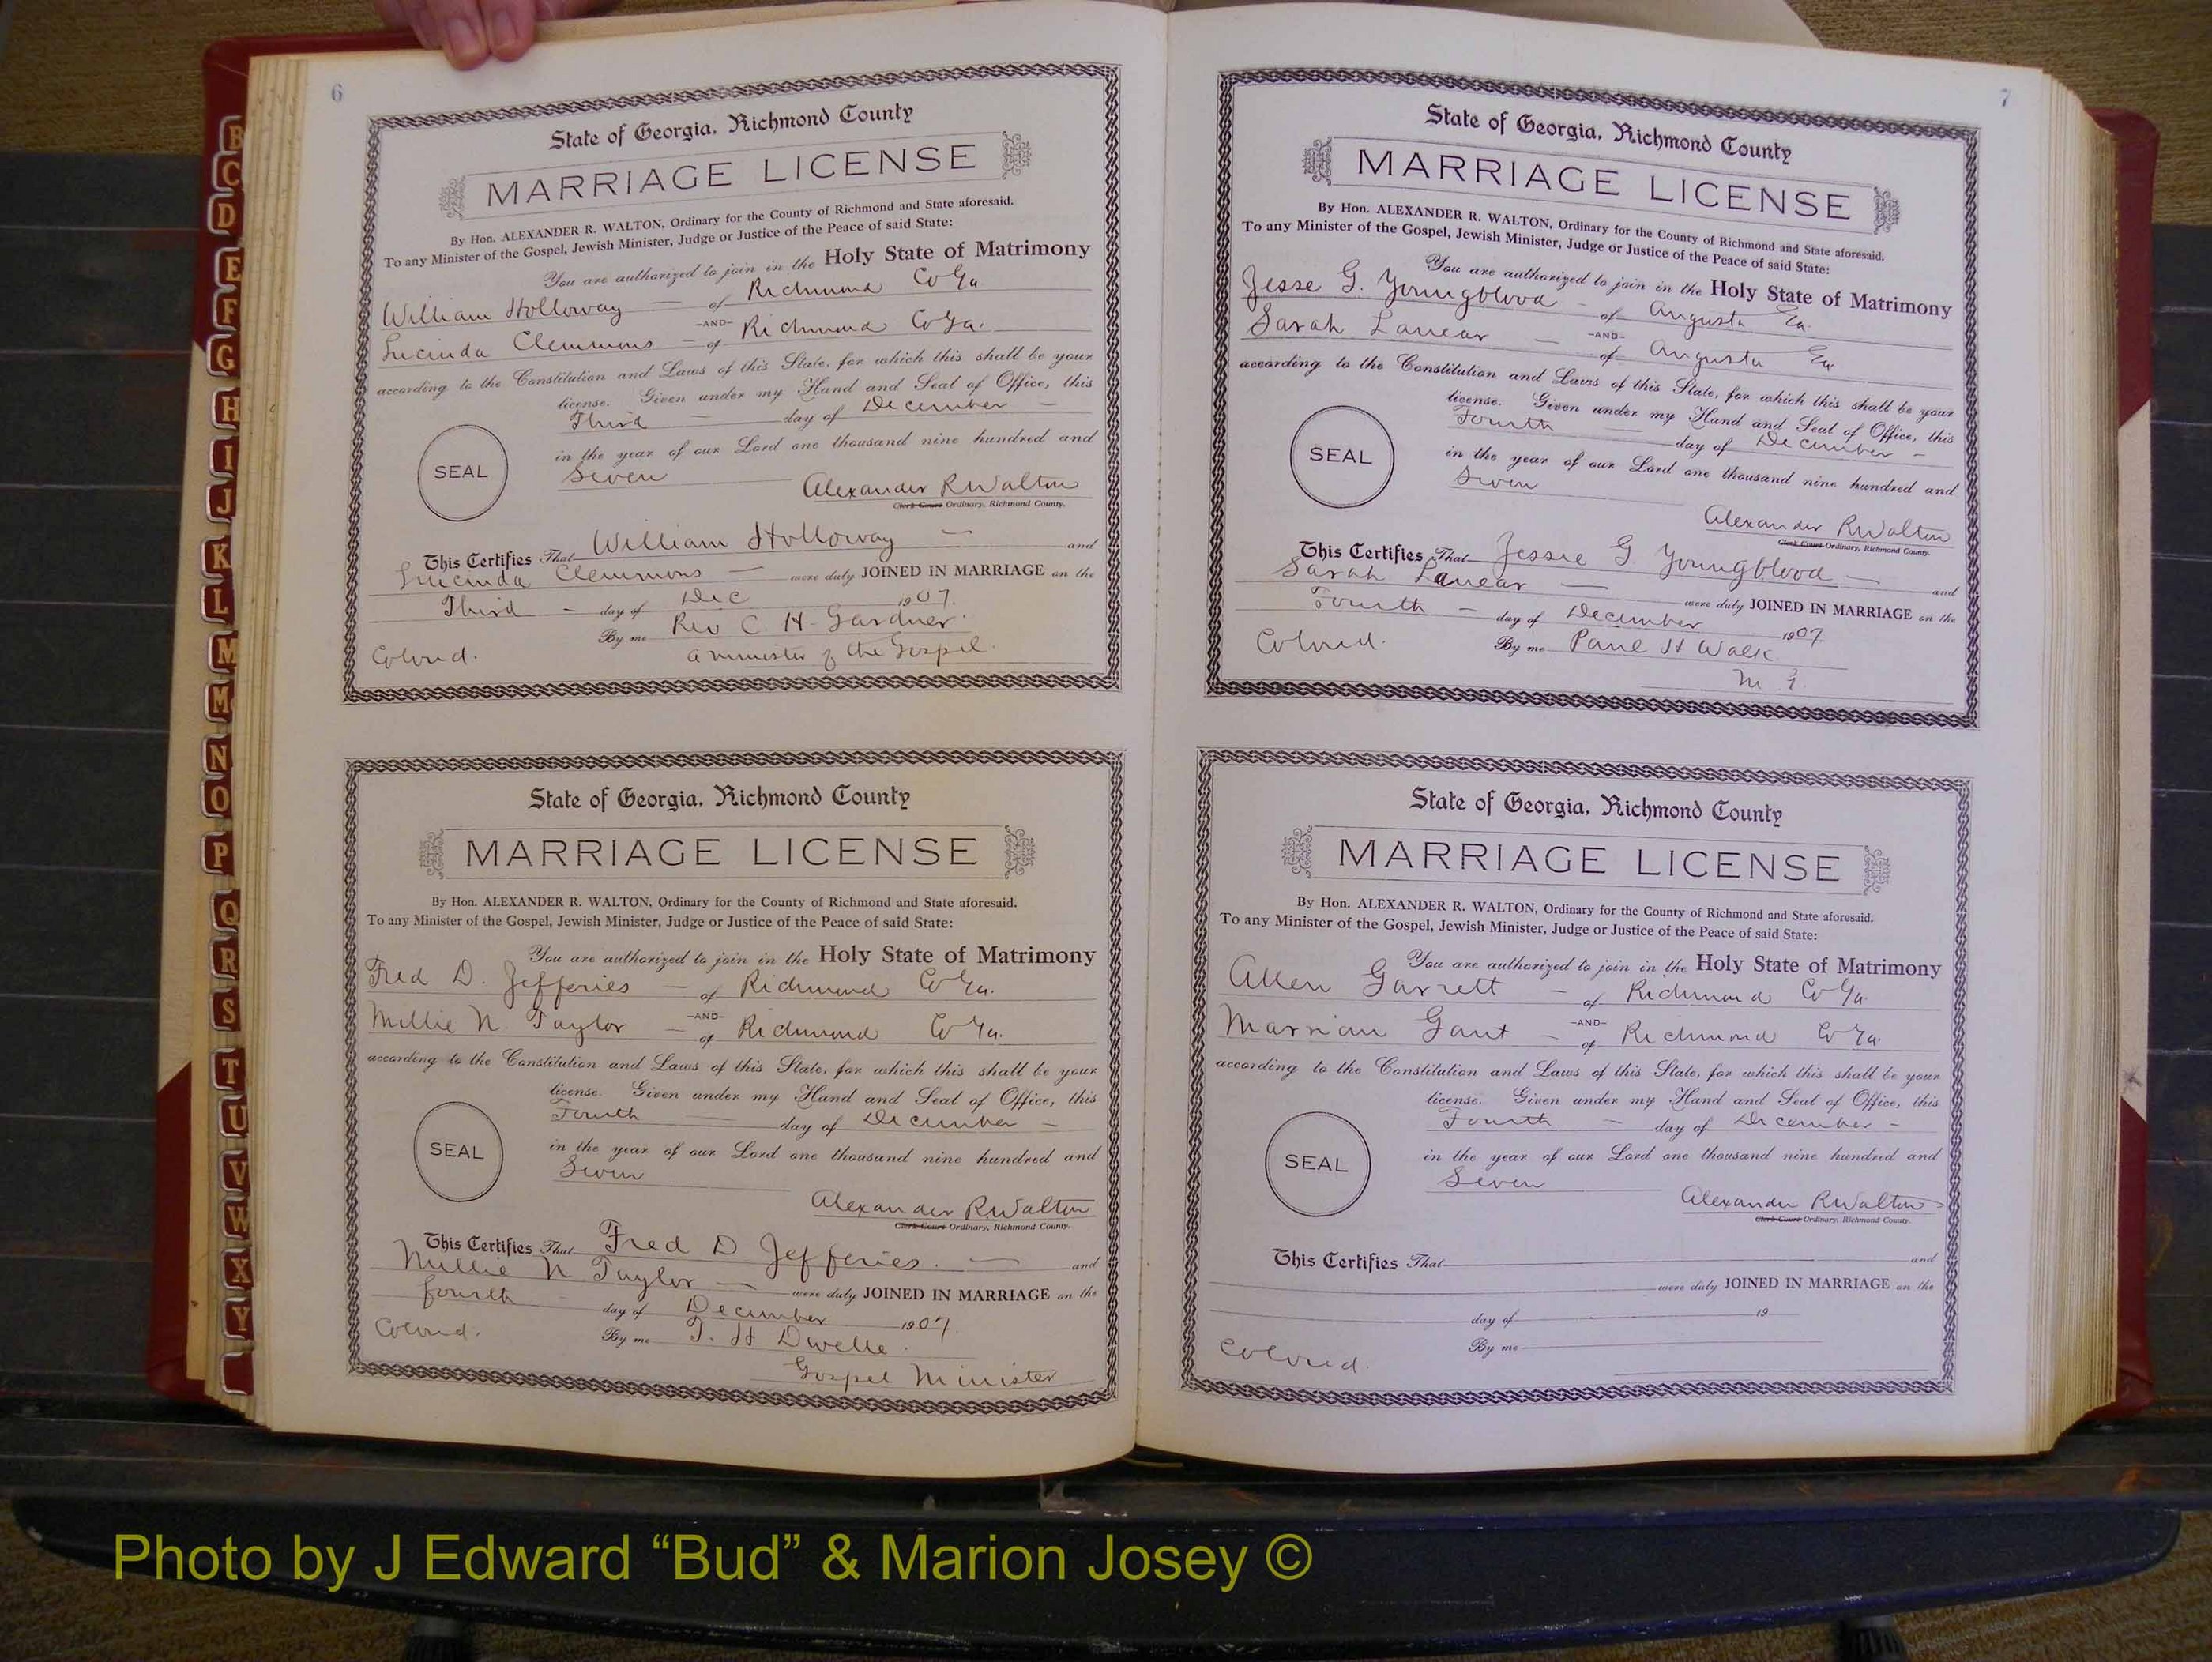 B
C
D
E
F
G
H
I
J
K
L
M
M
N
O
P
Q
R
S
T
U
V
W
X
Y
6
State of Georgia, Richmond County
MARRIAGE LICENSE
By Hon. ALEXANDER R. WALTON, Ordinary for the County of Richmond and State aforesaid.
To any Minister of the Gospel, Jewish Minister, Judge or Justice of the Peace of said State:
You are authorized to join in the Holy State of Matrimony
William Holloway — of Richmond Co Ga
-AND-
Lucinda Clemmons — of Richmond Co Ga.
according to the Constitution and Laws of this State, for which this shall be your
license. Given under my Hand and Seal of Office, this
Third — day of December —
in the year of our Lord one thousand nine hundred and
SEAL
Seven
Alexander R Walton
Clerk Court Ordinary, Richmond County.
This Certifies That William Holloway — and
Lucinda Clemmons — were duly JOINED IN MARRIAGE on the
Third — day of Dec 1907.
By me Rev C H Gardner.
Colored. a minister of the Gospel.
State of Georgia, Richmond County
MARRIAGE LICENSE
By Hon. ALEXANDER R. WALTON, Ordinary for the County of Richmond and State aforesaid.
To any Minister of the Gospel, Jewish Minister, Judge or Justice of the Peace of said State:
You are authorized to join in the Holy State of Matrimony
Fred D. Jefferies — of Richmond Co Ga.
-AND-
Millie N. Taylor — of Richmond Co Ga.
according to the Constitution and Laws of this State, for which this shall be your
license. Given under my Hand and Seal of Office, this
Fourth — day of December —
in the year of our Lord one thousand nine hundred and
SEAL
Seven
Alexander R Walton
Clerk Court Ordinary, Richmond County.
This Certifies That Fred D Jefferies. — and
Millie N Taylor — were duly JOINED IN MARRIAGE on the
fourth day of December 1907.
Colored. By me T. H Dwelle.
Gospel Minister
7
State of Georgia, Richmond County
MARRIAGE LICENSE
By Hon. ALEXANDER R. WALTON, Ordinary for the County of Richmond and State aforesaid.
To any Minister of the Gospel, Jewish Minister, Judge or Justice of the Peace of said State:
You are authorized to join in the Holy State of Matrimony
Jesse G. Youngblood — of Augusta Ga.
-AND-
Sarah Lanear — of Augusta Ga.
according to the Constitution and Laws of this State, for which this shall be your
license. Given under my Hand and Seal of Office, this
Fourth — day of December —
in the year of our Lord one thousand nine hundred and
SEAL
Seven
Alexander R Walton
Clerk Court Ordinary, Richmond County.
This Certifies That Jessie G Youngblood — and
Sarah Lanear — were duly JOINED IN MARRIAGE on the
Fourth — day of December 1907.
Colored. By me Paul H Walk
M G.
State of Georgia, Richmond County
MARRIAGE LICENSE
By Hon. ALEXANDER R. WALTON, Ordinary for the County of Richmond and State aforesaid.
To any Minister of the Gospel, Jewish Minister, Judge or Justice of the Peace of said State:
You are authorized to join in the Holy State of Matrimony
Allen Garrett — of Richmond Co Ga.
-AND-
Marrian Gant — of Richmond Co Ga.
according to the Constitution and Laws of this State, for which this shall be your
license. Given under my Hand and Seal of Office, this
Fourth — day of December —
in the year of our Lord one thousand nine hundred and
SEAL
Seven
Alexander R Walton
Clerk Court Ordinary, Richmond County.
This Certifies That and
were duly JOINED IN MARRIAGE on the
day of 19
Colored. By me
Photo by J Edward “Bud” & Marion Josey ©